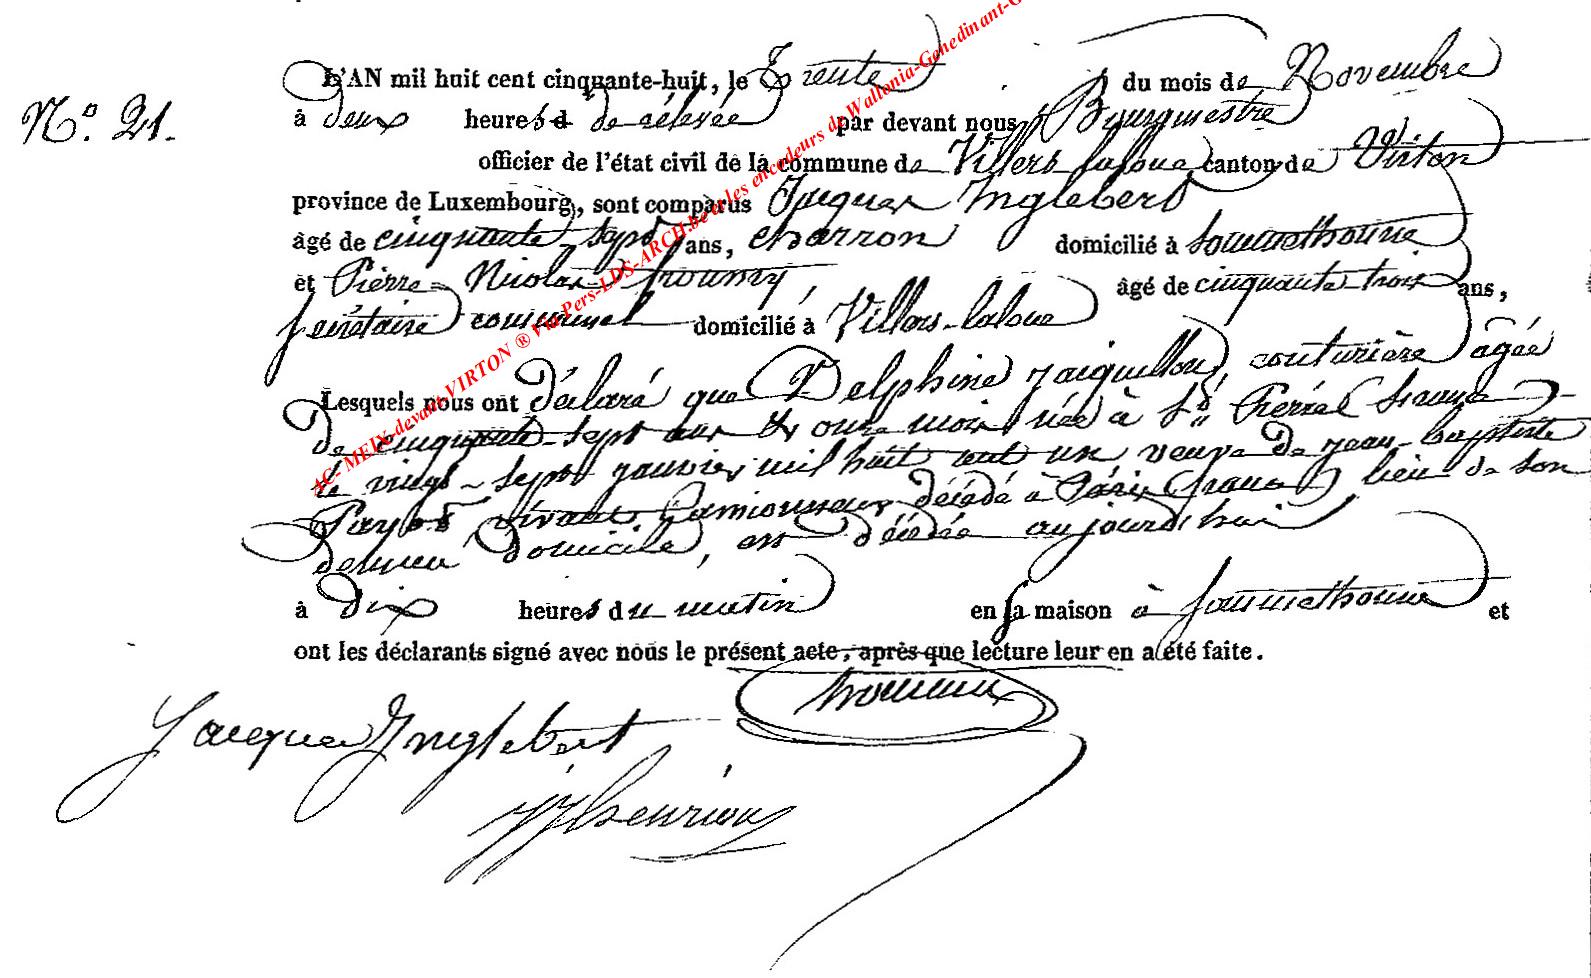 L'AN mil huit cent cinquante-huit, le Trente du mois de Novembre
N.° 21.
à deux heures de rélevée par devant nous Bourgmestre
officier de l'état civil de la commune de Villers-laloue, canton de Virton
province de Luxembourg, sont comparus Jacques Inglebert
âgé de cinquante sept ans, charron domicilié à Sommethonne
et Pierre Nicolas âgé de cinquante trois ans,
secrétaire communal domicilié à Villers-laloue
Lesquels nous ont déclaré que Delphine Jaiguillon, couturière âgée
de cinquante-sept ans & onze mois née à St Pierre france
le vingt-sept janvier mil huit cent un veuve de Jean-baptiste
vivant Camionneur décédé à Paris (france) lieu de son
dernier domicile, est décédée aujourd'hui
à Dix heures du matin en sa maison à Sommethonne et
ont les déclarants signé avec nous le présent acte, après que lecture leur en a été faite.
Jacques Inglebert
JJ henrion
AC- MEIX-devant-VIRTON ® Via Pers-LDS-ARCH.be et les encodeurs de Wallonia-Genedinant-G